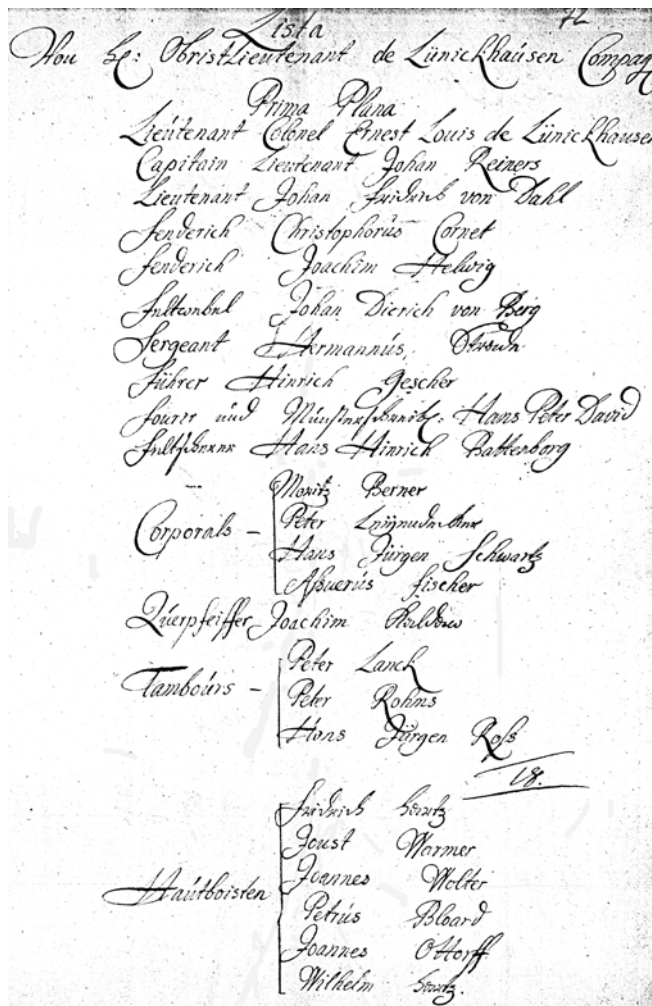 72
Lista
Von H: ObristLieutenant de Lünickhausen Compag
Prima Plana
Lieutenant Colonel Ernest Louis de Lünickhausen
Capitain Lieutenant Johan Reiners
Lieutenant Johan Fridrich von Dahl
Fenderich Christophorus Cornet
Fenderich Joachim Helwig
Feltwebel Johan Dierich von Berg
Sergeant Hermannus
Führer Hinrich Gescher
Fourir und Münsterschreib: Hans Peter David
Feltscherer Hans Hinrich Battenborg
Moritz Berner
Corporals – Peter
Hans Jürgen Schwartz
Aßuerus Fischer
Querpfeiffer Joachim
Peter Lanck
Tambours – Peter Rohms
Hans Jürgen Roß
18.
Fridrich Hertz
Joust Warmer
Joannes Wolter
Hautboisten Petrus Bloard
Joannes Ottorff
Wilhelm Hertz.